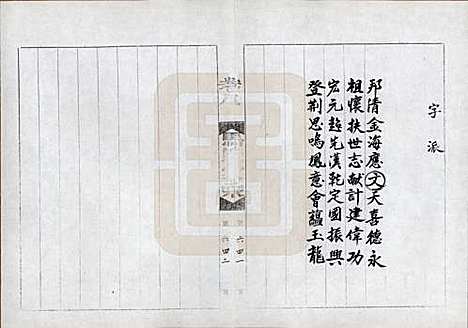 字派
邦清金海應文天喜德永
祖懷扶世志献計建偉功
宏元超先漢乾定國振興
登荆思鳴鳳意會蘊玉龍
卷八